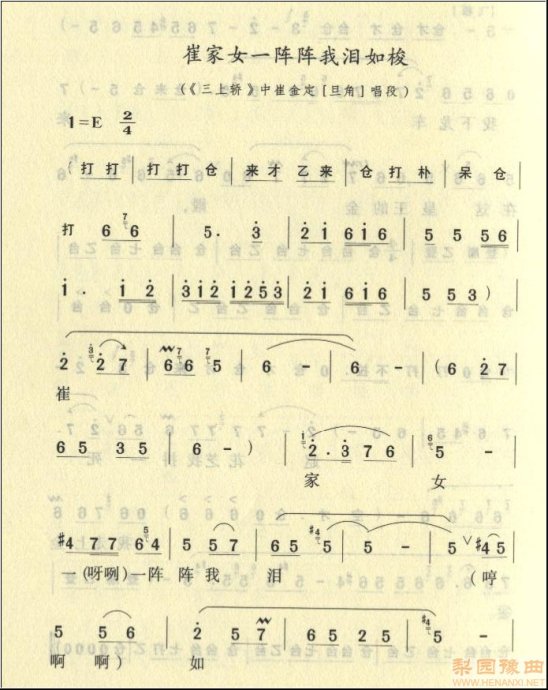 崔家女一阵阵我泪如梭
(《三上轿》中崔金定[旦角]唱段)
1=E 2/4
(打打 | 打打仓 | 来才乙来 | 仓打朴 | 呆仓 |
打 6 6 | 5. 3 | 2 1 6 1 6 | 5 5 5 6 |
1. 1 2 | 3 1 2 1 2 5 3 | 2 1 6 1 6 | 5 5 3) |
2 2 7 | 6 6 5 | 6 - | 6 - | (6 2 7 |
崔
6 5 3 5 | 6 - ) | 2. 3 7 6 | 5 - |
家 女
#4 7 7 6 4 | 5 5 7 | 6 5 5 | 5 - | 5 ∨ #4 5 |
一(呀咧)一阵 阵我 泪 (哼
5 5 6 | 2 5 7 | 6 5 2 5 | #4 5 - |
啊啊) 如
梨园豫曲
WWW.HENANXI.NET